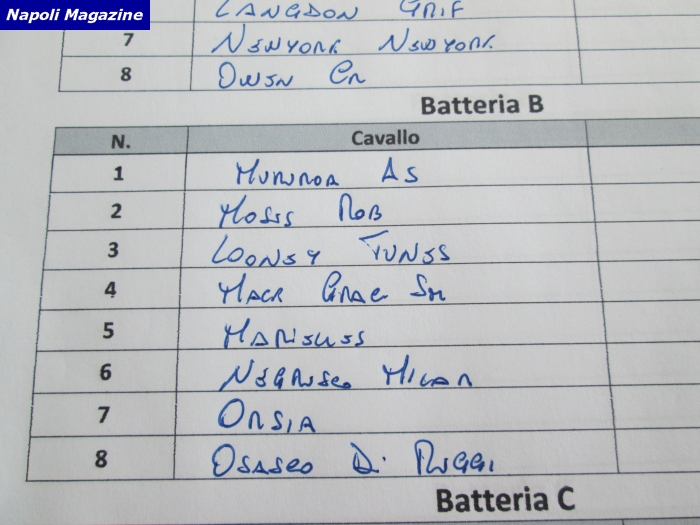 Napoli Magazine
LANGDON GRIF
7 NEWYORK NEWYORK
8 OWEN CR
Batteria B
N. Cavallo
1 AS
2 MOSES ROB
3 LOONEY TUNES
4 MACK GRACE SM
5
6 NEGRESCO MILAR
7 ORSIA
8 OSASCO DI RUGGI
Batteria C